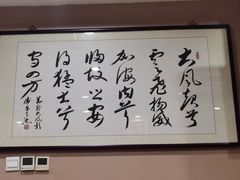 大风起兮
云飞扬威
加海内兮
归故乡安
得猛士兮
守四方